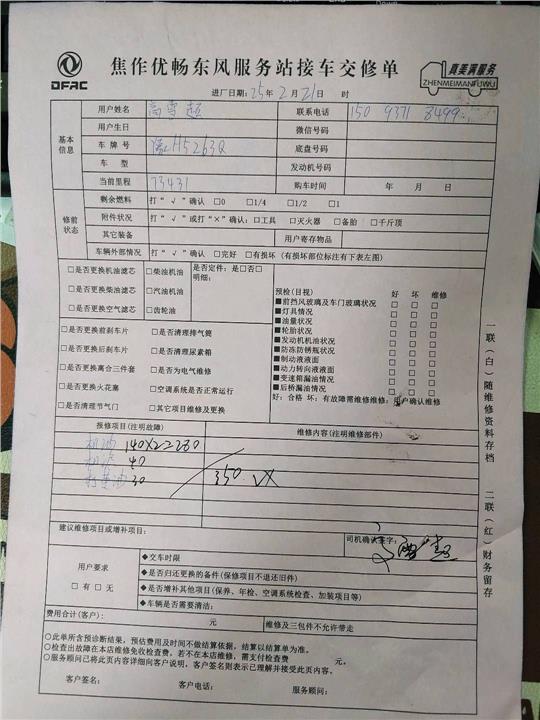 DFAC
焦作优畅东风服务站接车交修单
真美满服务
ZHENMEIMANFUWU
进厂日期:25年2月21日 时
基本信息
用户姓名 高雪超 联系电话 150 9371 8499
用户生日 微信号码
车牌号 豫H5263Q 底盘号码
车型 发动机号码
当前里程 73431 购车时间 年 月 日
修前状态
剩余燃料 打“√”确认 □0 □1/4 □1/2 □1
附件状况 打“√”或打“×”确认:□工具 □灭火器 □备胎 □千斤顶
其它装备 用户寄存物品
车辆外部情况 打“√”确认 □完好 □有损坏 (有损坏部位标注有下表左图)
□是否更换机油滤芯 □柴油机油 是否定件:是□否□
明细:
□是否更换柴油滤芯 □汽油机油
□是否更换空气滤芯 □齿轮油
□是否更换前刹车片 □是否清理排气筒
□是否更换后刹车片 □是否清理尿素箱
□是否更换离合三件套 □是否为电气维修
□是否更换火花塞 □空调系统是否正常运行
□是否清理节气门 □其它项目维修及更换
预检(目视) 好 坏 维修
■前挡风玻璃及车门玻璃状况 □ □ □
■灯具情况 □ □ □
■油量状况 □ □ □
■轮胎状况 □ □ □
■发动机机油状况 □ □ □
■防冻防锈瓶状况 □ □ □
■制动液液面 □ □ □
■动力转向液液面 □ □ □
■变速箱漏油情况 □ □ □
■后桥漏油情况 □ □ □
好:合格 坏:有故障需维修维修:用户确认维修
报修项目(注明故障) 维修内容(注明维修部件)
机油 140X2=280
机滤 40
打黄油 30 350
建议维修项目或增补项目:
司机确认签字:
用户要求
□有 □无
◆交车时限
◆是否归还更换的备件(保修项目不退还旧件)
◆是否增补其他项目(保养、年检、空调系统检查、加装项目等)
◆车辆是否需要清洁:
费用合计(客户): 元 维修及三包件不允许带走
○此单所含预诊断结果,预估费用及时间不做结算依据,结算以结算单为准。
○检查出故障在本店维修免收检查费,若不在本店维修,需支付检查费 元。
○服务顾问已将此页内容详细向客户说明,客户签名则表示已理解并接受此页内容。
客户签名: 客户电话: 服务顾问:
一联(白)随维修资料存档 二联(红)财务留存